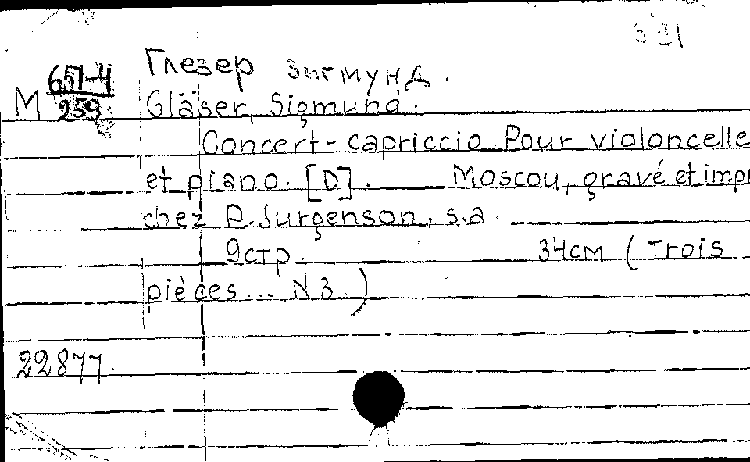 Глезер Зигмунд.
М 651-4
259
Gläser, Sigmund.
Concert-capriccio Pour violoncelle
et piano. [D]. Moscou, gravé et impr
chez P. Jurgenson, s.a.
9стр. 34см (Trois
pièces... N3.)
22877